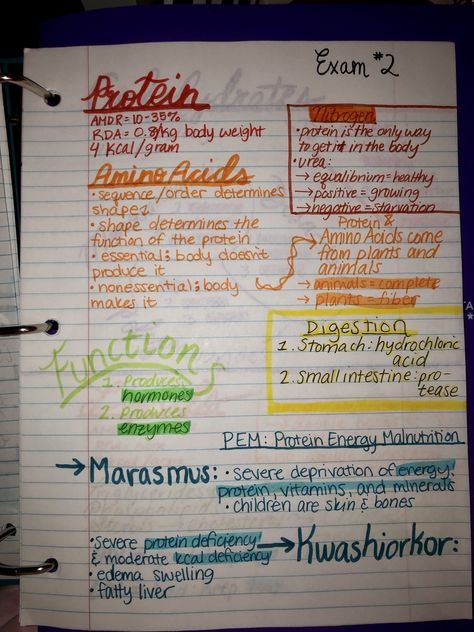 Exam #2
Protein
AMDR = 10-35%
RDA = 0.8g/kg body weight
4 Kcal/gram
Nitrogen
• protein is the only way
to get it in the body
• urea:
→ equalibrium = healthy
→ positive = growing
→ negative = starvation
Amino Acids
• sequence/order determines
shape↓
• shape determines the
function of the protein
• essential: body doesn't
produce it
• nonessential: body
makes it
Protein &
Amino Acids come
from plants and
animals
→ animals = complete
→ plants = fiber
Function
1. Produces
hormones
2. Produces
enzymes
Digestion
1. Stomach: hydrochloric
acid
2. Small intestine: pro-
tease
PEM: Protein Energy Malnutrition
→ Marasmus: • severe deprivation of energy,
protein, vitamins, and minerals
• children are skin & bones
• severe protein deficiency → Kwashiorkor:
& moderate kcal deficiency
• edema swelling
• fatty liver